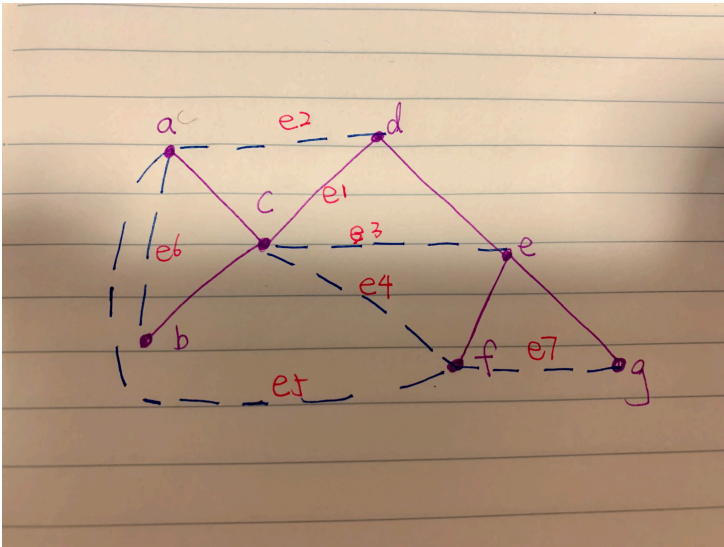 a
e2
d
c
e1
e3
e
e6
e4
b
f
e7
g
e5